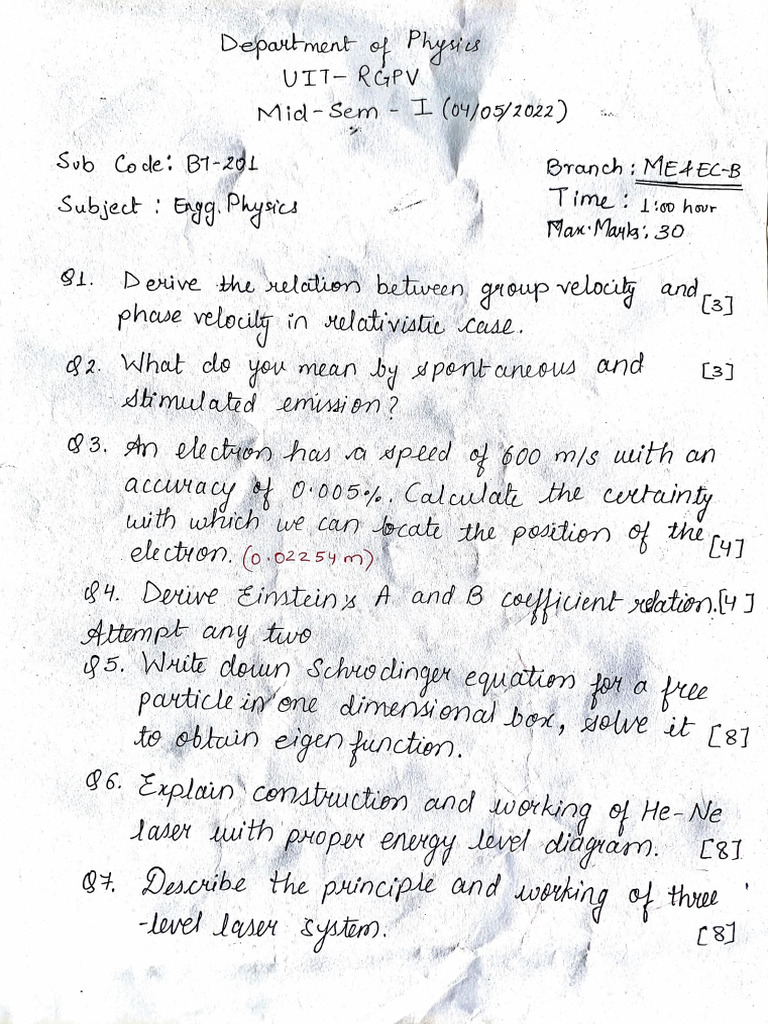 Department of Physics
UIT- RGPV
Mid-Sem - I (04/05/2022)
Sub Code: BT-201
Branch: ME&EC-B
Subject : Engg. Physics
Time : 1:00 hour
Max. Marks: 30
Q1. Derive the relation between group velocity and [3]
phase velocity in relativistic case.
Q2. What do you mean by spontaneous and [3]
stimulated emission?
Q3. An electron has a speed of 600 m/s with an
accuracy of 0.005%. Calculate the certainty
with which we can locate the position of the [4]
electron. (0.02254 m)
Q4. Derive Einstein's A and B coefficient relation. [4]
Attempt any two
Q5. Write down Schrodinger equation for a free
particle in one dimensional box, solve it [8]
to obtain eigen function.
Q6. Explain construction and working of He-Ne
laser with proper energy level diagram. [8]
Q7. Describe the principle and working of three
-level laser system. [8]